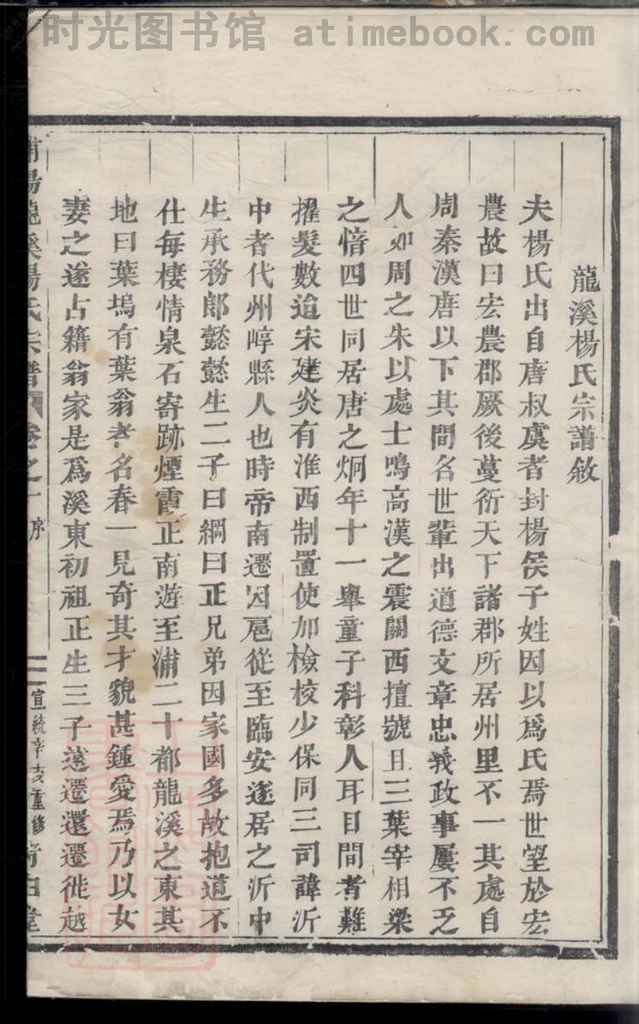 时光图书馆 atimebook.com
龍溪楊氏宗譜敘
夫楊氏出自唐叔虞者封楊侯子姓因以爲氏焉世望於宏
農故曰宏農郡厥後蔓衍天下諸郡所居州里不一其處自
周秦漢唐以下其間名世輩出道德文章忠義政事屢不乏
人如周之朱以處士鳴高漢之震關西擅號且三葉宰相梁
之愔四世同居唐之炯年十一舉童子科彰人耳目間者難
擢髮數迨宋建炎有淮西制置使加檢校少保同三司諱沂
中者代州崞縣人也時帝南遷因扈從至臨安遂居之沂中
生承務郎懿懿生二子曰綱曰正兄弟因家國多故抱道不
仕每棲情泉石寄跡煙霞正南遊至浦二十都龍溪之東其
地曰葉塢有葉翁者名春一見奇其才貌甚鍾愛焉乃以女
妻之遂占籍翁家是爲溪東初祖正生三子遠遷還遷徙越
浦陽龍溪楊氏宗譜 卷之一 序 宣統辛亥重修